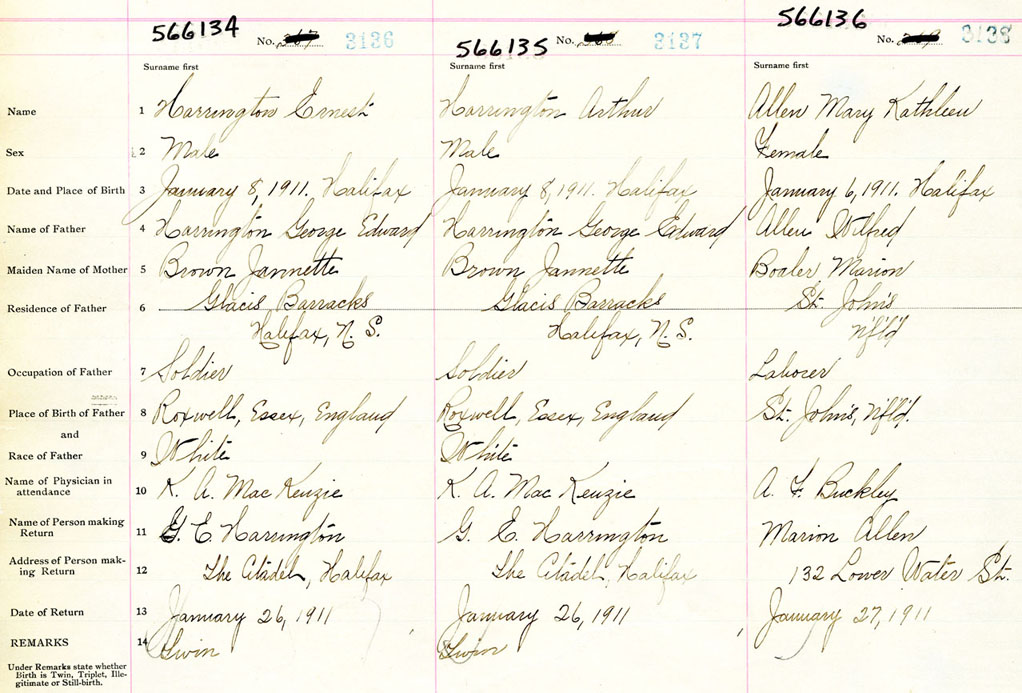 566134 No. 3136 566135 No. 3137 566136 No. 3138
Surname first Surname first Surname first
Name 1 Harrington Ernest Harrington Arthur Allen Mary Kathleen
Sex 2 Male Male Female
Date and Place of Birth 3 January 8, 1911. Halifax January 8, 1911. Halifax January 6, 1911. Halifax
Name of Father 4 Harrington George Edward Harrington George Edward Allen Wilfred
Maiden Name of Mother 5 Brown Jannette Brown Jannette Boaler Marion
Residence of Father 6 Glacis Barracks Glacis Barracks St. John's
Halifax, N. S. Halifax, N. S. Nf'l'd
Occupation of Father 7 Soldier Soldier Laborer
Place of Birth of Father 8 Roxwell, Essex, England Roxwell, Essex, England St. John's, Nfld.
and
Race of Father 9 White White
Name of Physician in
attendance 10 K. A. MacKenzie K. A. MacKenzie A. F. Buckley
Name of Person making
Return 11 G. E Harrington G. E. Harrington Marion Allen
Address of Person mak-
ing Return 12 The Citadel, Halifax The Citadel, Halifax 132 Lower Water St.
Date of Return 13 January 26, 1911 January 26, 1911 January 27, 1911
REMARKS 14 Twin Twin
Under Remarks state whether
Birth is Twin, Triplet, Ille-
gitimate or Still-birth.